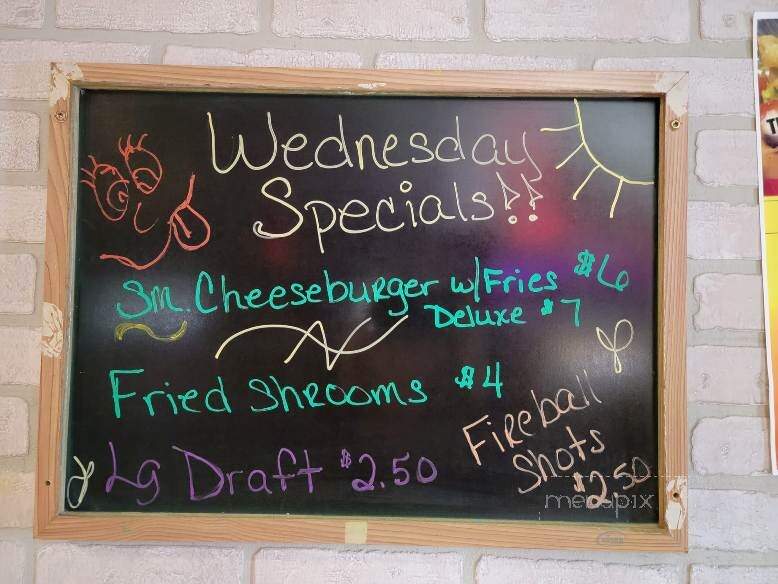 Wednesday
Specials!!
Sm. Cheeseburger w/Fries $6
Deluxe $7
Fried Shrooms $4
Fireball
Shots
$2.50
Lg Draft $2.50
menupix